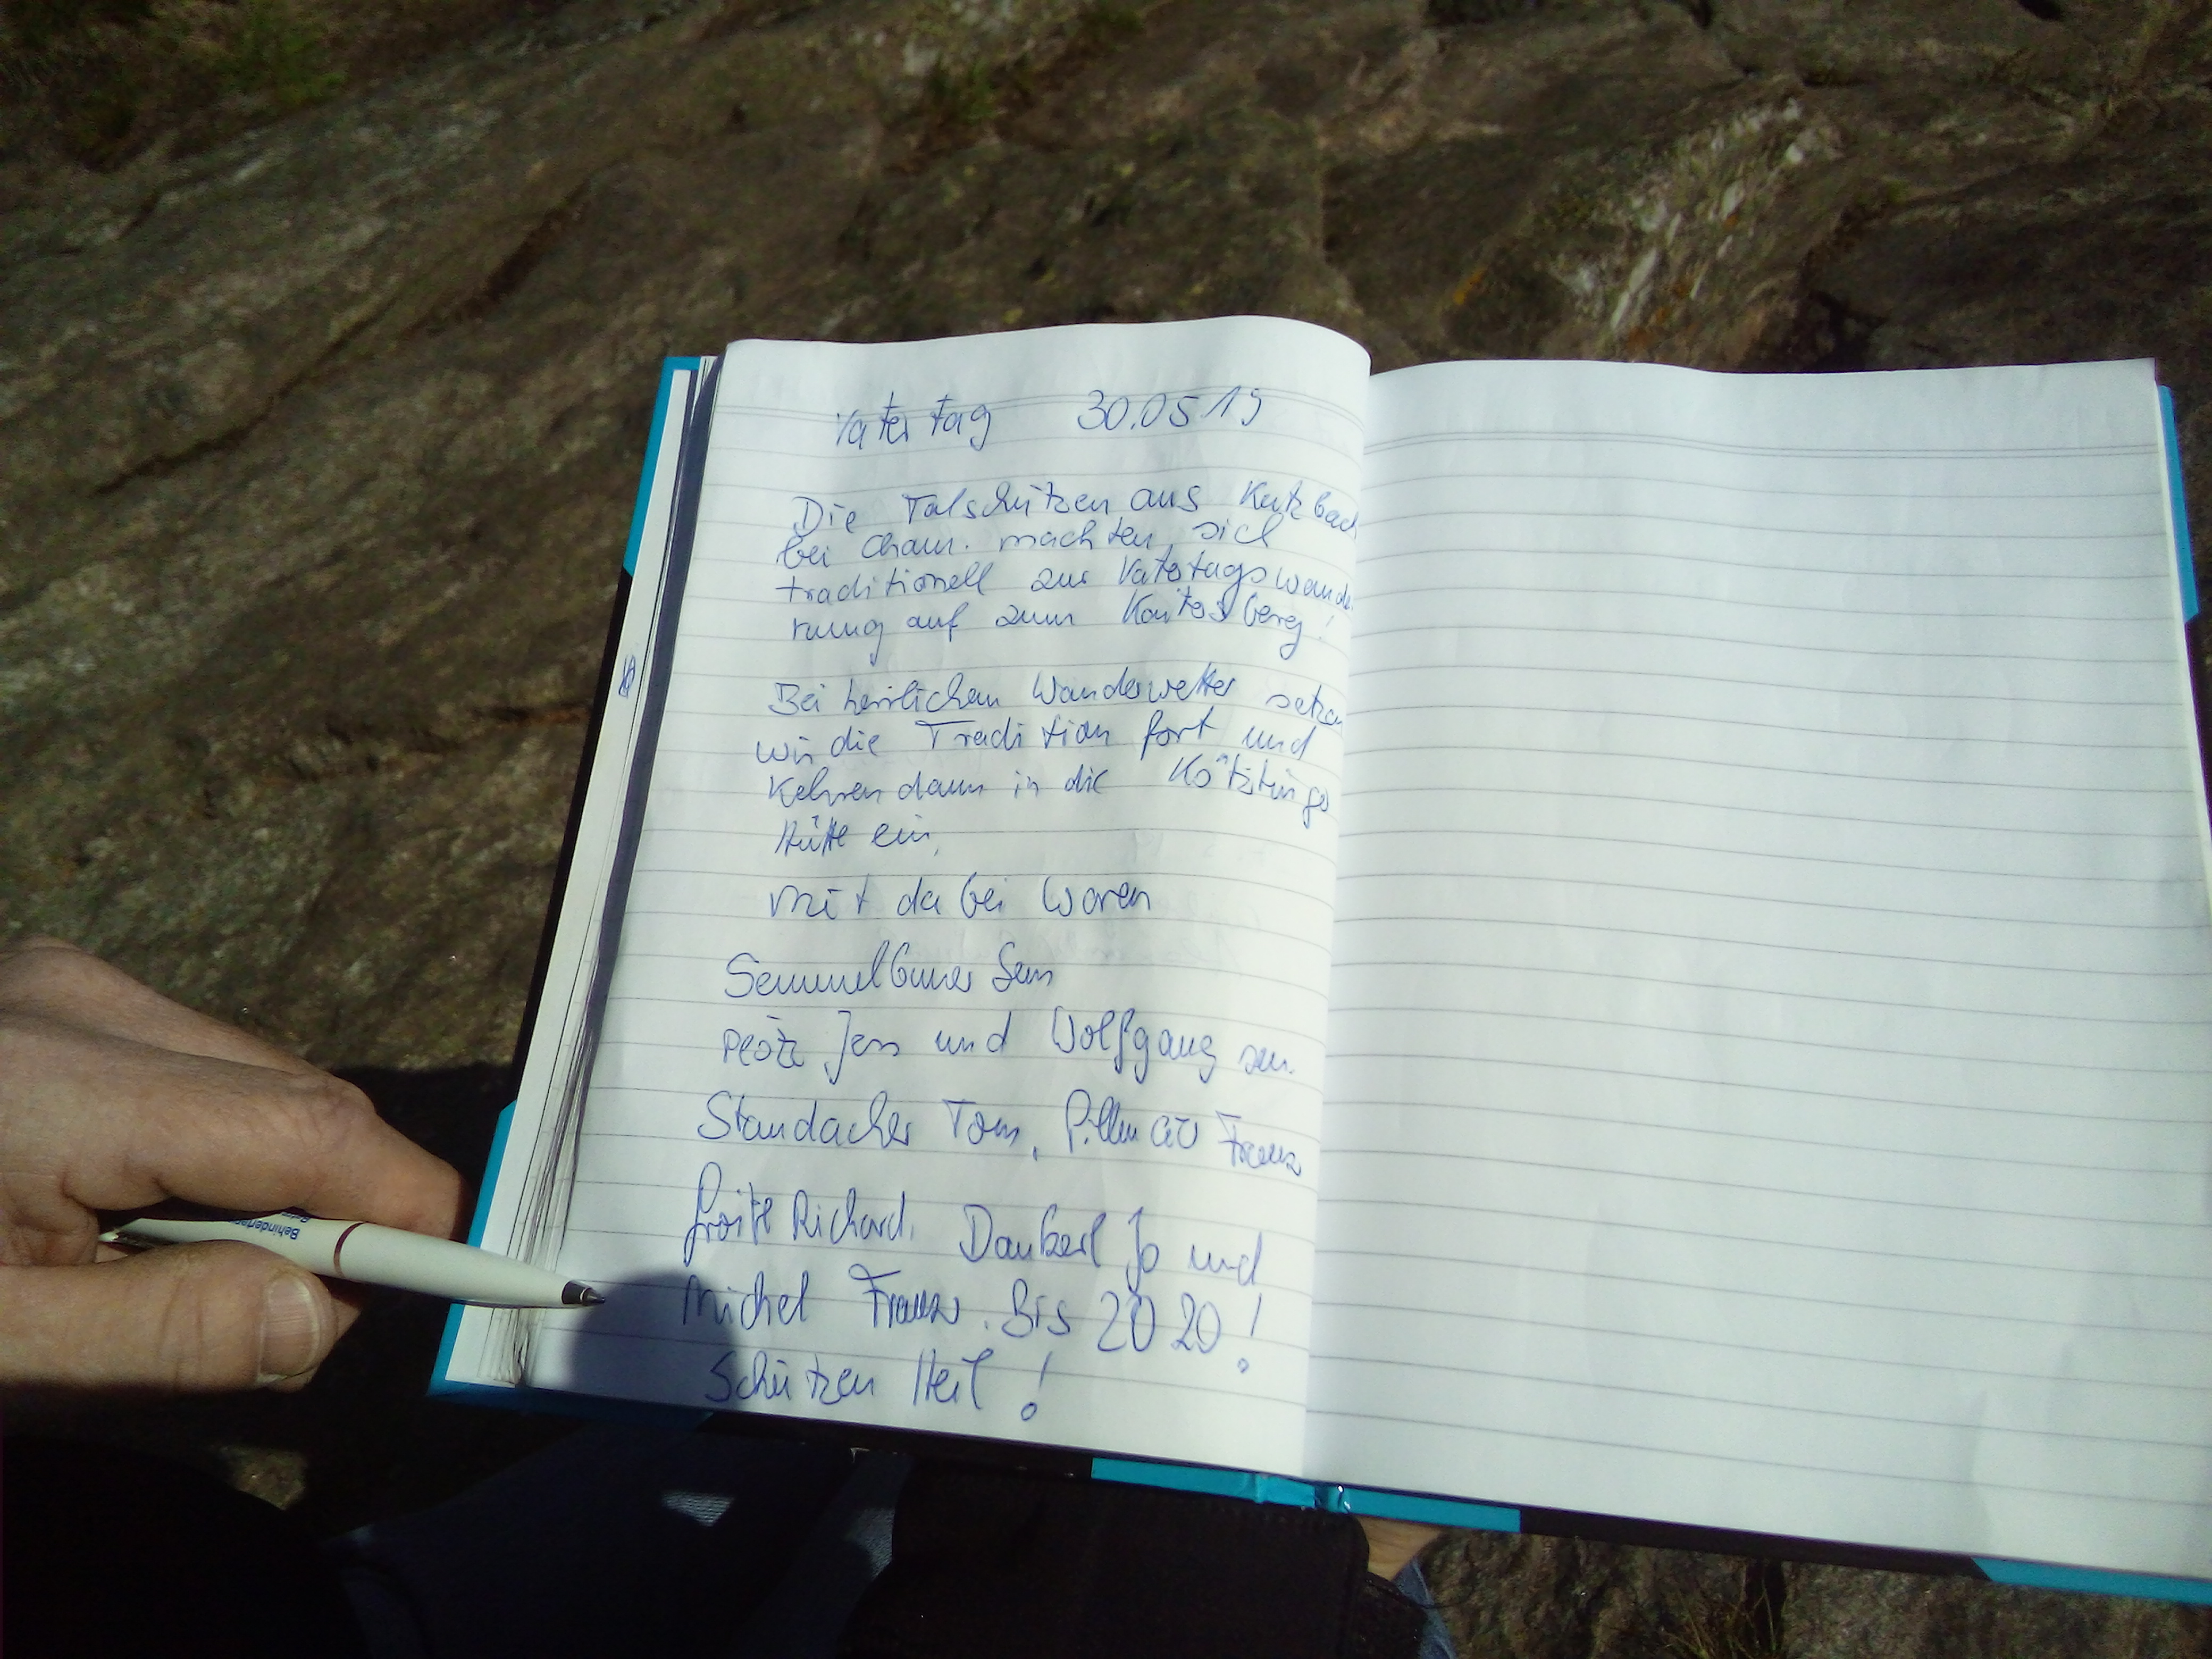 Vatertag 30.05.19
Die Talschützen aus Katzbach
bei Cham. machten sich
traditionell zur Vatertagswande
rung auf zum Kaitersberg!
Bei herrlichen Wanderwetter setzen
wir die Tradition fort und
Kehren dann in die Kötztinger
Hütte ein,
mit dabei waren
Semmelbauer
Jens und Wolfgang sen.
Staudacher Tom, Franz
Richard, Dankerl Jo und
Michel Franz. Bis 2020!
Schützen Heil!